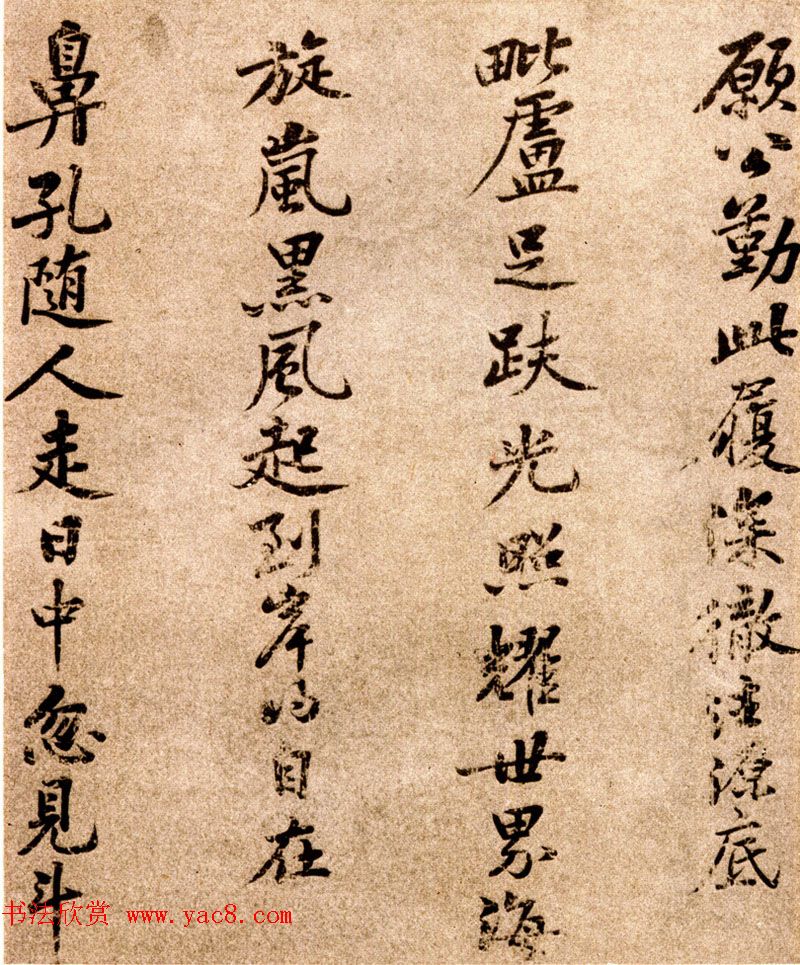 願公勤此履深徹法源底
毗盧足趺光照耀世界海
旋嵐黑風起到岸得自在
鼻孔随人走日中忽見斗
书法欣赏 www.yac8.com